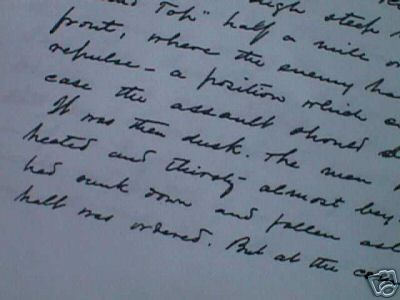 steep
Top" half a mile
front, where the enemy ha
repulse - a position which
case the assault should
It was then dusk. The men
heated and thirsty almost bey
had sunk down and fallen asl
halt was ordered. But at the